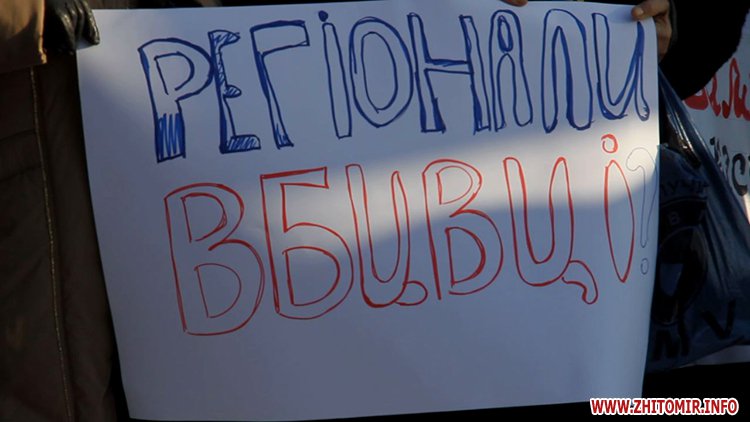 РЕГІОНАЛИ
ВБИВЦІ?
WWW.ZHITOMIR.INFO